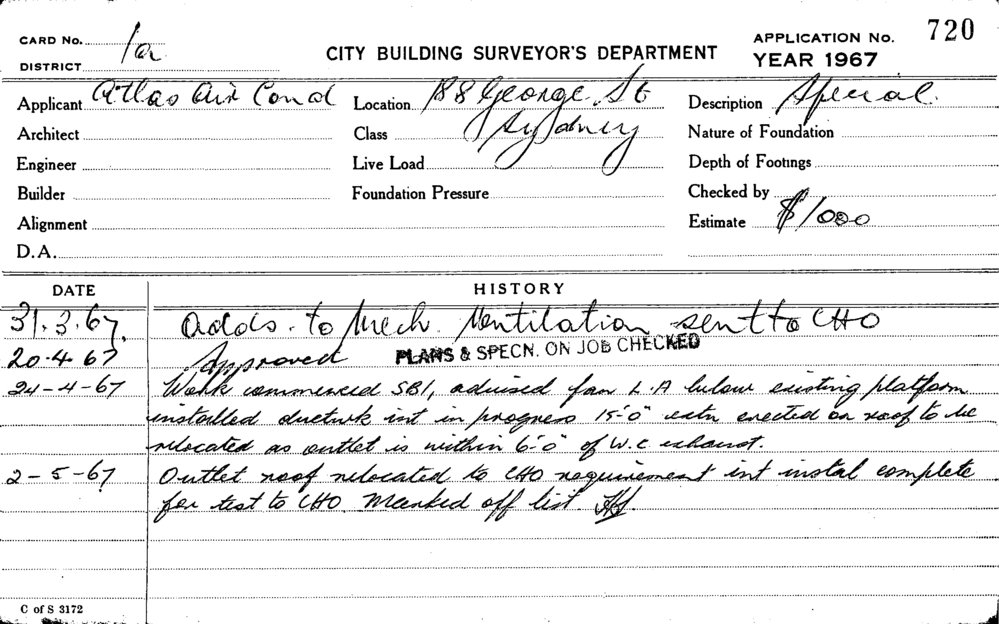 CARD No. 1a
DISTRICT
CITY BUILDING SURVEYOR'S DEPARTMENT
APPLICATION No. 720
YEAR 1967
Applicant Atlas Air Cond Location 188 George St Description Special.
Architect Class Sydney Nature of Foundation
Engineer Live Load Depth of Footings
Builder Foundation Pressure Checked by
Alignment Estimate $1000
D.A.
DATE HISTORY
31.3.67. Adds. to Mech. Ventilation sent to CHO
20.4.67 Approved PLANS & SPECN. ON JOB CHECKED
24-4-67 Work commenced SB1, advised fan L.A below existing platform
installed ductwk int in progress 15'-0" extn erected on roof to be
relocated as outlet is within 6'-0" of W.C exhaust.
2-5-67 Outlet roof relocated to CHO requirement int instal complete
for test to CHO. Marked off list.
C of S 3172